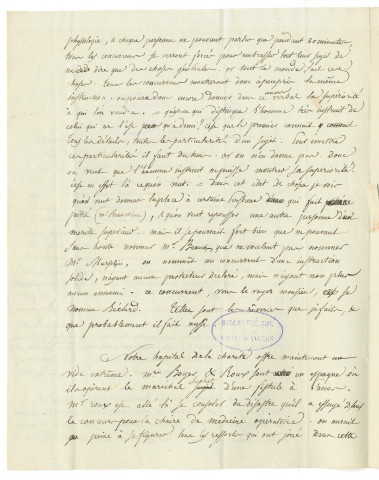 physiologie, à chaque personne ne pouvant parler que pendant 20 minutes
tous les concurrens se verront forcés pour embrasser tout leur sujet de
ne dire que des choses générales or tout le monde sait ces
choses. tous les concurrens montreront donc à peu près la même
instruction. on pourra donc encore donner dans ce la supériorité
à qui l'on voudra. qu'est-ce qui distingue l'homme très instruit de
celui qui ne l'est qu'à demi? c'est que le premier connoit
tous les détails, toutes les particularités d'un sujet. Pour montrer
ces particularités il faut du tems. or on n'en donne pas. Donc
on veut que l'homme instruit ne puisse montrer sa supériorité.
c'est en effet là ce qu'on veut. dans cet état de choses je vois
qu'on veut donner la place à certaine personne qui fait
pitié , & qu'on veut repousser une autre personne d'un
mérite supérieur. mais il se pourrait fort bien que ne pouvant
sans honte nommer mr. que ne voulant pas nommer
Mr. , on nommât un concurrent d'une instruction
solide, n'ayant aucun protecteur declaré, mais n'ayant non plus
aucun ennemi. ce concurrent, vous le voyez monsieur, se
nomme Béclard. Telles sont les rêveries que j'ai faites, &
que probablement il fait aussi.
Notre hopital de la charité offre maintenant un
vide extrême. mrs Boyer & Roux sont en espagne où
ils opèrent le marechal Suchet d'une fistule à l'anus.
Mr. roux est allé là se consoler du désastre qu'il a essuyé dans
le concours pour la chaire de médecine opératoire. on aurait
peine à se figurer tous les ressorts qui ont joué dans cette